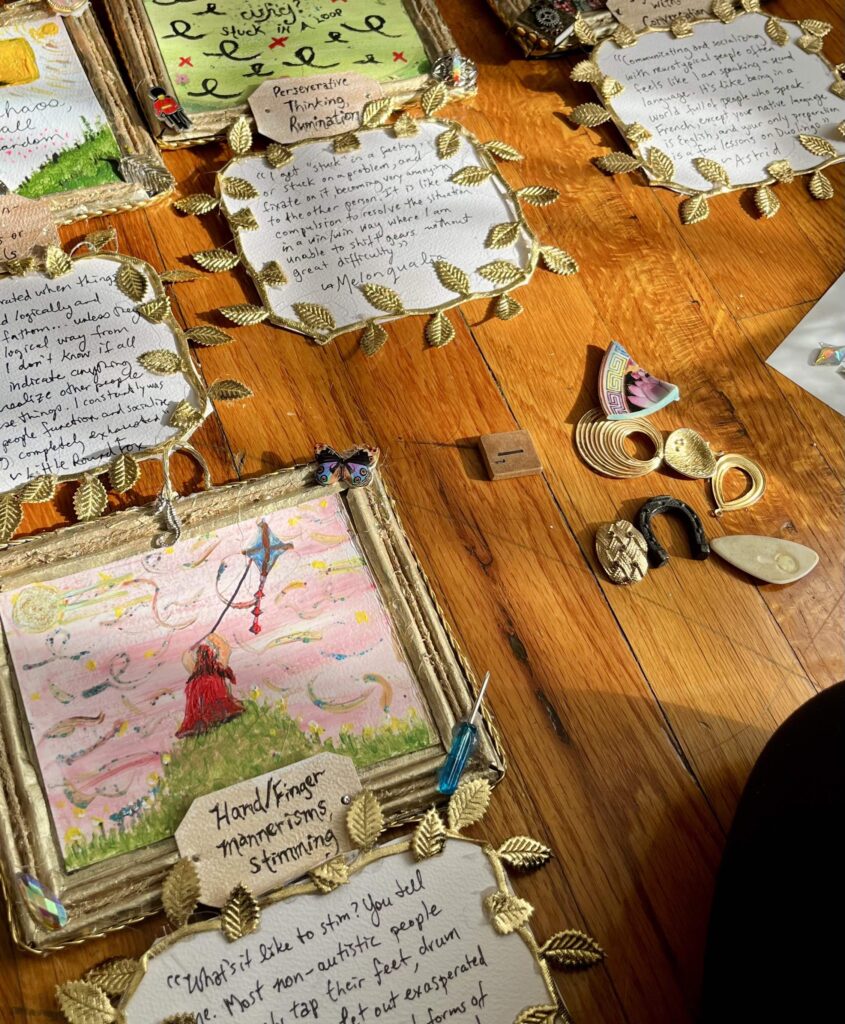 chaos
all
random
STUCK IN A LOOP
Perseverative
Thinking,
Rumination
"I get "stuck" in a feeling,
or stuck on a problem, and
fixate on it becoming very annoying
to the other person. It is like a
compulsion to resolve the situation
in a win/win way where I am
unable to shift gears without
great difficulty"
Melonqualia
with
Conversation
"Communicating and socializing
with neurotypical people often
feels like I am speaking a second
language. It's like being in a
world full of people who speak
French, except your native language
is English and your only preparation
is a few lessons on Duolingo"
~ Astrid
or
when things
logically and
fathom... unless
logical way from
I don't know if all
indicate anything
realize other people
things. I constantly was
people function and socialize
completely exhausted
Little Round Fox
I
Hand/Finger
mannerisms,
stimming
"What's it like to stim? You tell
me. Most non-autistic people
tap their feet, drum
let out exasperated
forms of